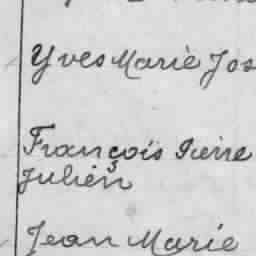 Yves Marie Jos
François Pierre
Julien
Jean Marie